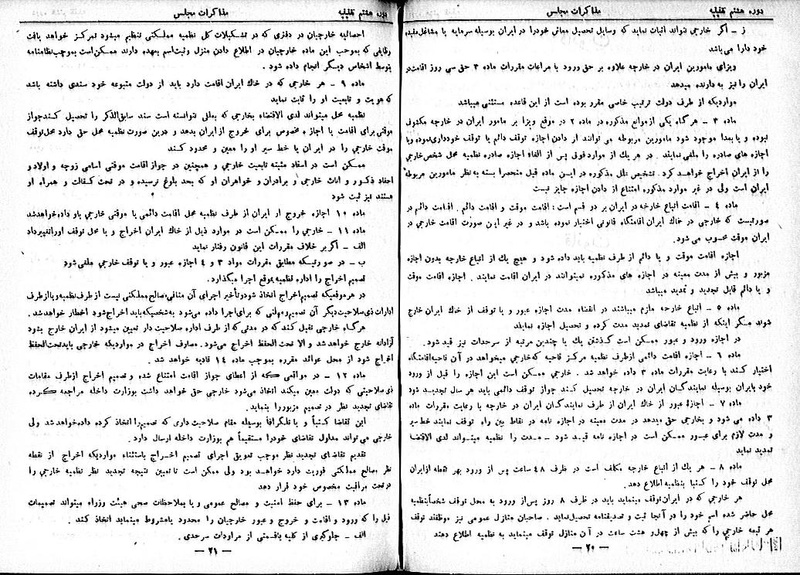 دوره هشتم تقنینیه
مذاکرات مجلس
ز - اگر خارجی نتواند اثبات نماید که وسایل تحصیل معاش خود را در ایران بوسیله سرمایه یا مشاغل مفیده
خود دارا می‌باشد
ویزای مامورین ایران در خارجه علاوه بر حق ورود با مراعات مقررات ماده ۳ حق سی روز اقامت در
ایران را نیز به دارنده میدهد
مواردیکه از طرف دولت ترتیب خاصی مقرر بوده است از این قاعده مستثنی میباشد
ماده ۳ - هر گاه یکی از موانع مذکوره در ماده ۲ در موقع ویزا بر مامور ایران در خارجه مکشوف
نبوده و یا بعداً موجود شود مامورین مربوطه می توانند از دادن اجازه توقف دائم یا توقف خودداری نموده و یا
اجازه های صادره را ملغی نمایند . در هر یک از موارد فوق پس از الغاء اجازه صادره نظمیه محل شخص خارجی
را از ایران اخراج خواهد کرد . تشخیص علل مذکوره در این ماده قبل منحصراً بسته به نظر مامورین مربوطه
ایران است ولی در غیر موارد مذکوره امتناع از دادن اجازه جایز نیست
ماده ۴ - اقامت اتباع خارجه در ایران بر دو قسم است : اقامت موقت و اقامت دائم . اقامت دائم در
صورتیست که خارجی در خاک ایران اقامتگاه قانونی اختیار نموده باشد و در غیر این صورت اقامت خارجی در
ایران موقت محسوب می شود .
اجازه اقامت موقت و یا دائم از طرف نظمیه باید داده شود و هیچ یک از اتباع خارجه بدون اجازه
مزبور و بیش از مدت معینه در اجازه های مذکوره نمیتوانند در ایران اقامت نمایند . اجازه اقامت موقت
و یا دائم قابل تجدید و تمدید میباشد
ماده ۵ - اتباع خارجه ملزم میباشند در انقضاء مدت اجازه عبور و یا توقف از خاک ایران خارج
شوند مگر اینکه از نظمیه تقاضای تمدید مدت کرده و تحصیل اجازه نمایند
در اجازه ورود و عبور ممکن است گذشتن یک یا چندین مرتبه از سرحدات نیز قید شود .
ماده ۶ - اجازه اقامت دائمی از طرف نظمیه مرکز ناحیه که خارجی میخواهد در آن ناحیه اقامتگاه
اختیار کند با رعایت مقررات ماده ۳ داده خواهد شد . خارجی ممکن است این اجازه را قبل از ورود
خود بایران بوسیله نمایندگان ایران در خارجه تحصیل کند جواز توقف دائمی باید هر سال تجدید شود
ماده ۷ - اجازه عبور از خاک ایران از طرف نمایندگان ایران در خارجه با رعایت مقررات ماده
۳ داده می شود و بخارجی حق میدهد در مدت معینه در اجازه نامه در نقاط بین راه توقف نمایند خط سیر
و مدت لازم برای عبور ممکن است در اجازه نامه قید شود - مدت را نظمیه میتواند لدی الاقتضا
تمدید نماید
ماده ۸ - هر یک از اتباع خارجه مکلف است در ظرف ۴۸ ساعت پس از ورود بهر نقطه از ایران
محل توقف خود را کتباً بنظمیه اطلاع دهد .
هر خارجی که در ایران توقف مینماید باید در ظرف ۸ روز پس از ورود به محل توقف شخصاً بنظمیه
محل حاضر شده اسم خود را در آنجا ثبت و تصدیقنامه تحصیل نماید . صاحبان منازل عمومی نیز موظفند توقف
هر تبعه خارجی را که بیش از چهل و هشت ساعت در آن منازل توقف مینماید به نظمیه اطلاع دهند
— ۲۰ —
دوره هشتم تقنینیه
مذاکرات مجلس
احصائیه خارجیان در دفتری که در تشکیلات کل نظمیه مملکتی تنظیم میشود تمرکز خواهد یافت
وظایفی که بموجب این ماده خارجیان در اطلاع دادن منزل و ثبت اسم بعهده دارند ممکن است بموجب نظامنامه
توسط اشخاص دیگر انجام داده شود .
ماده ۹ - هر خارجی که در خاک ایران اقامت دارد باید از دولت متبوعه خود سندی داشته باشد
که هویت و تابعیت او را ثابت نماید
نظمیه محل میتواند لدی الاقتضاء بخارجی که بعللی نتوانسته است سند سابق الذکر را تحصیل کند جواز
موقتی برای اقامت یا اجازه مخصوص برای خروج از ایران بدهد و در این صورت نظمیه محل حق دارد محل توقف
موقت خارجی را در ایران یا خط سیر او را معین و محدود کند
ممکن است در اسناد مثبته تابعیت خارجی و همچنین در جواز اقامت موقتی اسامی زوجه و اولاد و
احفاد ذکور و اناث خارجی و برادران و خواهران او که بحد بلوغ نرسیده و در تحت کفالت و همراه او
هستند نیز ثبت شود
ماده ۱۰ اجازه خروج از ایران از طرف نظمیه محل اقامت دائمی یا موقتی خارجی باو داده خواهد شد
ماده ۱۱ - خارجی را ممکن است در موارد ذیل از خاک ایران اخراج و یا محل توقف او را تغییر داد
الف - اگر بر خلاف مقررات این قانون رفتار نماید
ب - در صورتیکه مطابق مقررات مواد ۳ و ۴ اجازه عبور و یا توقف خارجی ملغی شود
تصمیم اخراج را اداره نظمیه بموقع اجرا میگذارد .
در هر موقعیکه تصمیم اخراج اتخاذ شود و تأخیر اجرای آن منافی مصالح مملکتی نیست از طرف نظمیه و یا از طرف
ادارات ذی صلاحیت دیگر آن تصمیم و مهلتی که برای اجرا داده میشود به شخصیکه باید اخراج شود اخطار خواهد شد .
هر گاه خارجی تقبل کند که در مدتی که از طرف اداره صلاحیت دار تعیین میشود از ایران خارج بشود
آزادانه خارج خواهد شد و الا تحت الحفظ اخراج می‌شود . مصارف اخراج در مواردیکه خارجی باید تحت الحفظ
اخراج شود از محل عوائد مقرره بموجب ماده ۱۴ تادیه خواهد شد .
ماده ۱۲ - در مواقعی که از اعطای جواز اقامت امتناع شده و تصمیم اخراج از طرف مقامات
ذی صلاحیتی که دولت معین میکند اتخاذ می‌شود خارجی حق خواهد داشت بوزارت داخله مراجعه کرده
تقاضای تجدید نظر در تصمیم مزبور را بنماید .
این تقاضا کتباً و یا تلگرافاً بوسیله مقام صلاحیت داری که تصمیم را اتخاذ کرده داده خواهد شد ولی
خارجی می‌تواند مدلول تقاضای خود را مستقیماً هم بوزارت داخله ارسال دارد .
تقدیم تقاضای تجدید نظر موجب تعویق اجرای تصمیم اخراج باستثناء مواردیکه اخراج از نقطه
نظر مصالح مملکتی فوریت دارد خواهد بود ولی ممکن است تا تعیین نتیجه تجدید نظر نظمیه خارجی را
در تحت مراقبت مخصوص خود قرار دهد
ماده ۱۳ - برای حفظ امنیت و مصالح عمومی و یا بملاحظات صحی هیئت وزراء میتواند تصمیمات
ذیل را که ورود و اقامت و خروج و عبور خارجیان را محدود یا مشروط مینماید اتخاذ کند .
الف - جلوگیری از کلیه یا قسمتی از مراودات سرحدی .
— ۲۱ —